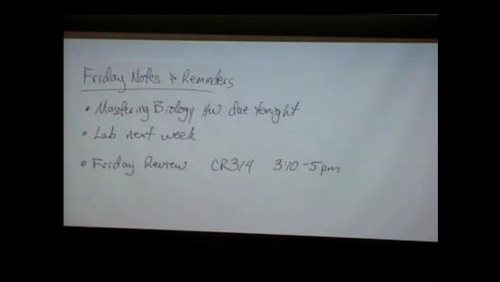 Friday Notes & Reminders
• Mastering Biology HW due tonight
• Lab next week
• Friday Review CR314 3:10-5pm